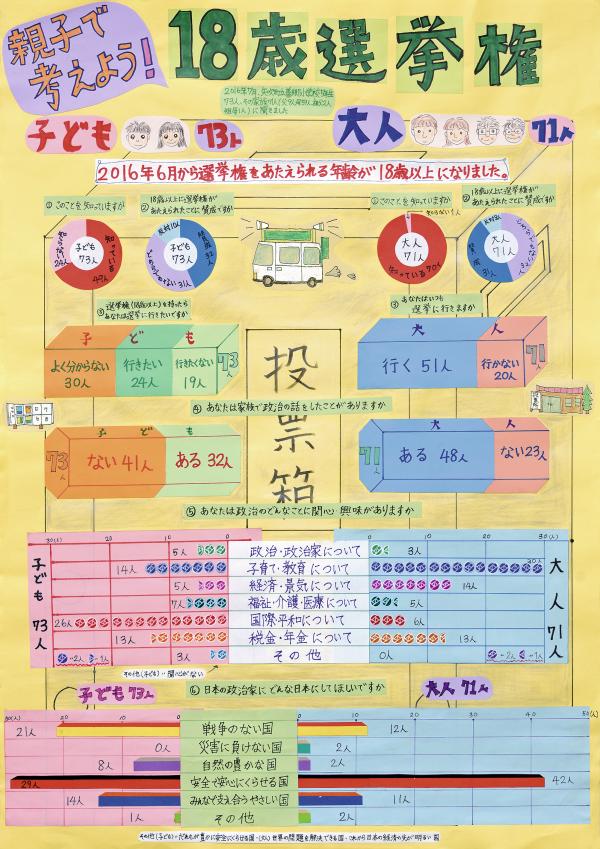 親子で
考えよう!
18歳選挙権
子ども 73人
大人 71人
2016年6月から選挙権をあたえられる年齢が18歳以上になりました。
①このことを知っていますか
②18歳以上に選挙権が
あたえられたことに賛成ですか
①このことを知っていますか
②18歳以上に選挙権が
あたえられたことに賛成ですか
子ども
73人
知っている
49人
知らない
24人
子ども
73人
賛成
32人
反対10人
どちらでもない31人
大人
71人
知っている70人
知らない1人
大人
71人
賛成
31人
③選挙権(18歳以上)を持ったら
あなたは選挙に行きたいですか
③あなたはいつも
選挙に行きますか
子ども
よく分からない
30人
行きたい
24人
行きたくない
19人
73人
大人
行く 51人
行かない
20人
71人
投票箱
④あなたは家族で政治の話をしたことがありますか
子ども
73人
ない 41人
ある 32人
大人
71人
ある 48人
ない 23人
⑤あなたは政治のどんなことに関心・興味がありますか
30(人) 20 10 0
0 10 20 30(人)
子ども73人
大人71人
5人 政治・政治家について 3人
14人 子育て・教育について 30人
5人 経済・景気について 14人
7人 福祉・介護・医療について 5人
26人 国際・平和について 6人
13人 税金・年金について 13人
3人 その他 0人
…2人 …1人
…2人 …1人
その他(子ども)…関心がない
子ども73人
⑥日本の政治家にどんな日本にしてほしいですか
大人71人
30(人) 20 10 0
0 10 20 30 40 50(人)
21人 戦争のない国 12人
0人 災害に負けない国 2人
8人 自然の豊かな国 2人
29人 安全で安心にくらせる国 42人
14人 みんなで支え合うやさしい国 11人
1人 その他 2人